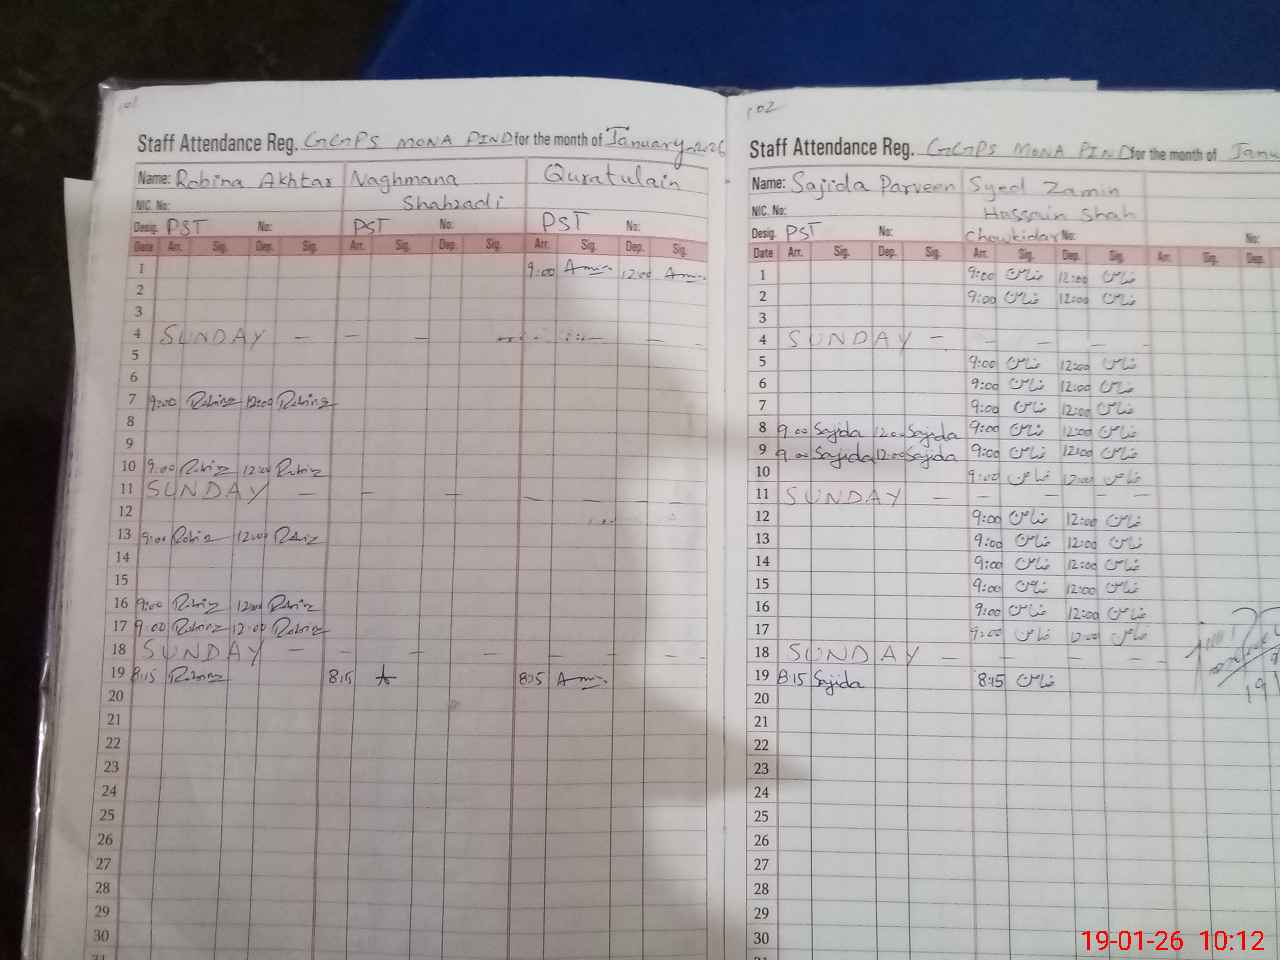 101
Staff Attendance Reg. GGPS MONA PIND for the month of January-2026
Name: Robina Akhtar Naghmana Shahzadi Quratulain
NIC. No:
Desig. PST No: PST No: PST No:
Date Arr. Sig. Dep. Sig. Arr. Sig. Dep. Sig. Arr. Sig. Dep. Sig.
1 9:00 12:00
2
3
4 SUNDAY — — —
5
6
7 9:00 Robina 12:00 Robina
8
9
10 9:00 Robina 12:00 Robina
11 SUNDAY — — — — — — —
12
13 9:00 Robina 12:00 Robina
14
15
16 9:00 Robina 12:00 Robina
17 9:00 Robina 12:00 Robina
18 SUNDAY — — — — — — —
19 8:15 Robina 8:15 8:15
20
21
22
23
24
25
26
27
28
29
30
31
102
Staff Attendance Reg. GGPS MONA PIND for the month of Janu
Name: Sajida Parveen Syed Zamin Hassain Shah
NIC. No:
Desig. PST No: Chowkidar No: No:
Date Arr. Sig. Dep. Sig. Arr. Sig. Dep. Sig. Arr. Sig. Dep.
1 9:00 ضامن 12:00 ضامن
2 9:00 ضامن 12:00 ضامن
3
4 SUNDAY — — — — —
5 9:00 ضامن 12:00 ضامن
6 9:00 ضامن 12:00 ضامن
7 9:00 ضامن 12:00 ضامن
8 9:00 Sajida 12:00 Sajida 9:00 ضامن 12:00 ضامن
9 9:00 Sajida 12:00 Sajida 9:00 ضامن 12:00 ضامن
10 9:00 ضامن 12:00 ضامن
11 SUNDAY — — — — — —
12 9:00 ضامن 12:00 ضامن
13 9:00 ضامن 12:00 ضامن
14 9:00 ضامن 12:00 ضامن
15 9:00 ضامن 12:00 ضامن
16 9:00 ضامن 12:00 ضامن
17 9:00 ضامن 12:00 ضامن
18 SUNDAY — — — — — —
19 8:15 Sajida 8:15 ضامن
20
21
22
23
24
25
26
27
28
29
30
19-01-26 10:12